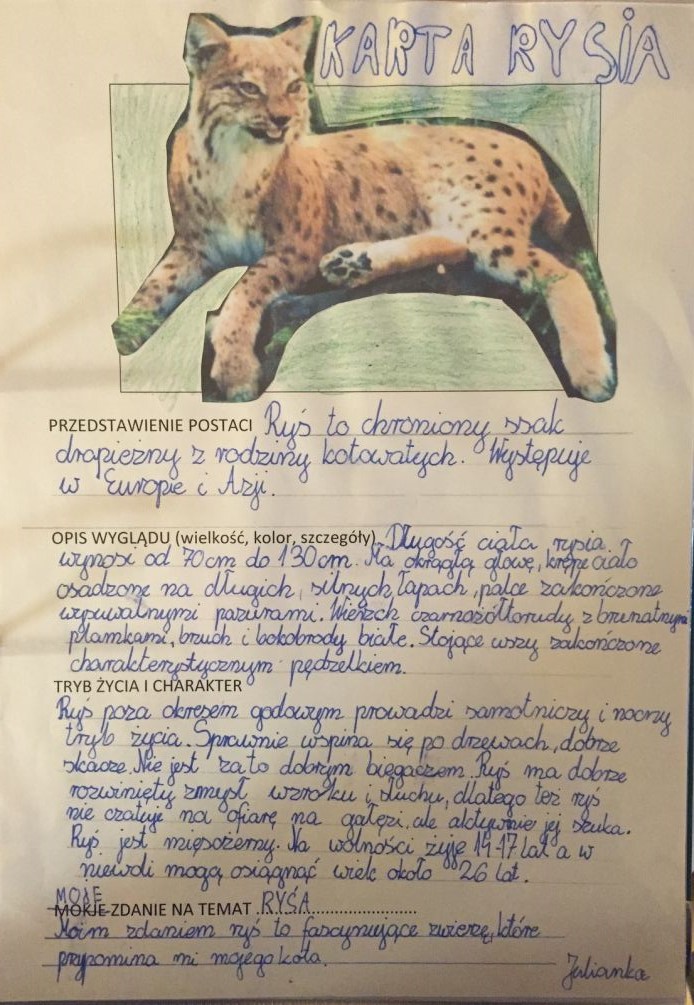 KARTA RYSIA
PRZEDSTAWIENIE POSTACI Ryś to chroniony ssak
drapieżny z rodziny kotowatych. Występuje
w Europie i Azji.
OPIS WYGLĄDU (wielkość, kolor, szczegóły) Długość ciała rysia
wynosi od 70cm do 130cm. Ma okrągłą głowę, krępe ciało
osadzone na długich, silnych łapach, palce zakończone
wysuwalnymi pazurami. Wierzch czarnożółtorudy z brunatnymi
plamkami, brzuch i bokobrody białe. Stojące uszy zakończone
charakterystycznym pędzelkiem.
TRYB ŻYCIA I CHARAKTER
Ryś poza okresem godowym prowadzi samotniczy i nocny
tryb życia. Sprawnie wspina się po drzewach, dobrze
skacze. Nie jest za to dobrym biegaczem. Ryś ma dobrze
rozwinięty zmysł wzroku i słuchu, dlatego też ryś
nie czatuje na ofiarę na gałęzi, ale aktywnie jej szuka.
Ryś jest mięsożerny. Na wolności żyje 14-17 lat a w
niewoli mogą osiągnąć wiek około 26 lat.
MOJE
MOKJE ZDANIE NA TEMAT RYŚA
Moim zdaniem ryś to fascynujące zwierzę, które
przypomina mi mojego kota.
Julianka